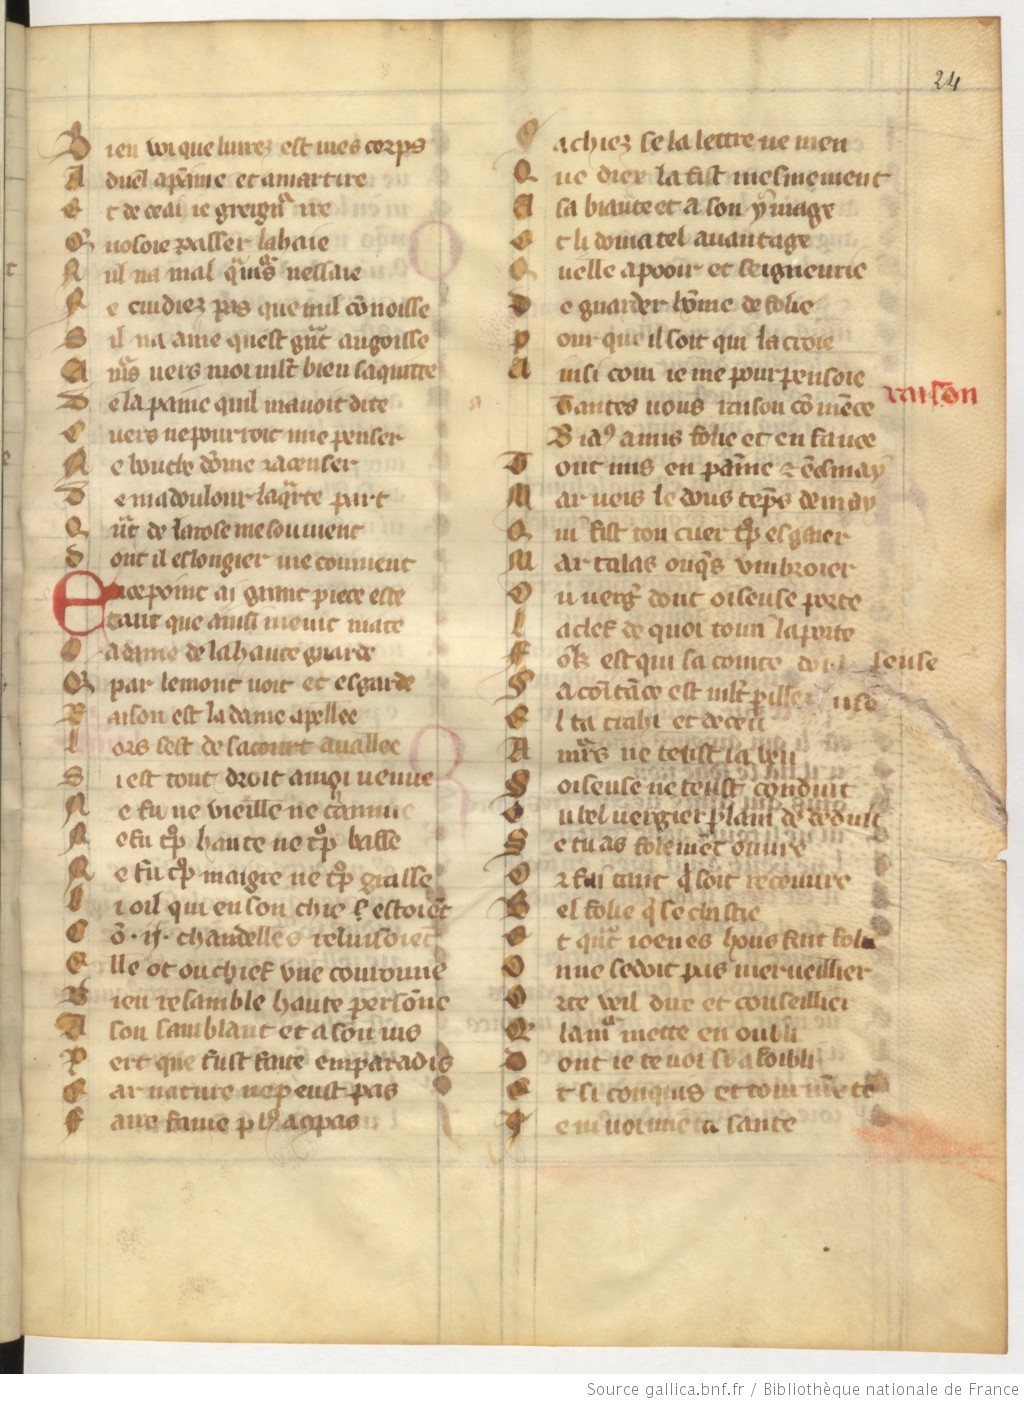 24
B ien voi que livrez est mes corps
A duel a paine et a martire
E t de ceai ie greigneur ire
Q nosoie passer la haie
N ul na mal
N e cuidiez pas que nul connoisse
S il na ame quest grant angoisse
A mors vers moi mlt bien saquitte
D e la paine quil mavoit dite
C uers ne porroit mie penser
N e bouche dome racenser
D e ma doulour la quarte part
Q nt de la rose me souvient
D ont il eslongier me convient
E n ce point ai grant piece este
Tant que ainsi me vit mate
L a dame de la haute garde
Q par lemont voit et esgarde
R aison est la dame apellee
L ors sest de sa tourt avallee
S i est tout droit a moi venue
N e fu ne vieille ne chanue
N e fu trop haute ne trop basse
N e fu trop maigre ne trop grasse
L i oil qui en son chief estoient
C o .ii. chandelles reluisoient
E lle ot ou chief une couronne
B ien resamble haute personne
A son samblant et a son vis
P ert que fust faite em paradis
C ar nature ne peust pas
F aire fame
S achiez se la lettre ne ment
Q ue diex la fist mesmement
A sa biaute et a son ymage
E t li dona tel avantage
Q uelle a pooir et seigneurie
D e garder home de folie
P our que il soit qui la croie
A insi com ie me pourpensoie
Tantes vous raison commence
raison
Biaus amis folie et enfance
T ont mis en paine et esmay
M ar veis le dous temps de may
Q ui fist ton cuer trop esgaier
M ar talas onques umbroier
O u vergier dont oiseuse porte
L a clef de quoi
F ox est qui sa cointe doiseuse
S acointance est mlt perilleuse
E l ta trahi et deceu
A mors ne teust ia veu
S oiseuse ne teust conduit
O u bel vergier plain de deduit
S e tu as folement ouvre
O r fai tant quil soit recouvre
B el folie
E t quant ioenes hons fait folie
O n ne sedoit pas merveillier
O r te veil dire et conseillier
Q lamor mette en oubli
D ont ie te voi si afoibli
E t si conquis et tourmente
J e ni voi mie ta sante
Source gallica.bnf.fr / Bibliothèque nationale de France